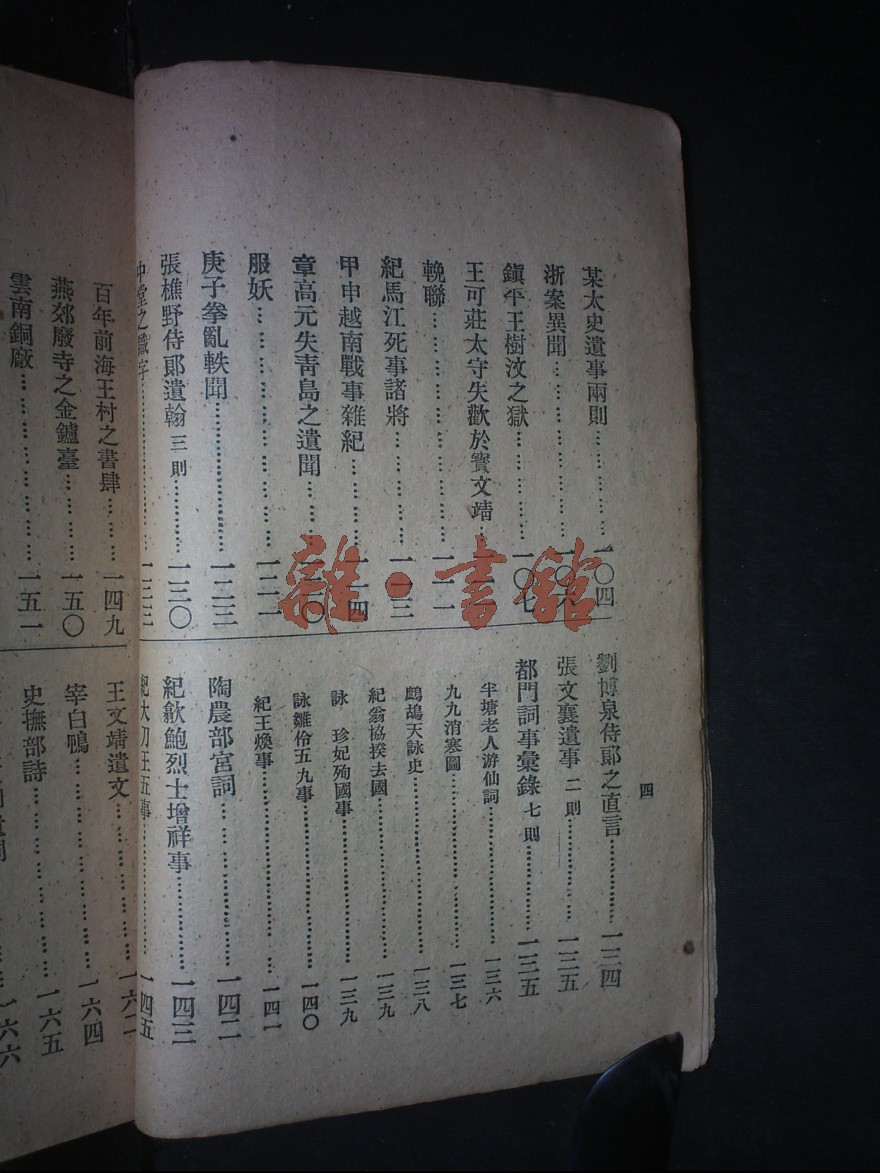 四
某太史遺事兩則………………一〇四
浙案異聞………………一〇
鎭平王樹汶之獄………………一〇七
王可莊太守失歡於寳文靖………
輓聯………………一一一
紀馬江死事諸將………………一一三
甲申越南戰事雜紀………………一一四
章高元失靑島之遺聞………〇
服妖………………一二一
庚子拳亂軼聞………………一二三
張樵野侍郞遺翰 三則………………一三〇
中堂之識字………………一三三
劉博泉侍郞之直言………………一三四
張文襄遺事 二則………………一三五
都門詞事彙錄 七則………………一三五
半塘老人游仙詞………………一三六
九九消寒圖………………一三七
鷓鴣天詠史………………一三八
紀翁協揆去國………………一三九
詠 珍妃殉國事………………一三九
詠雛伶五九事………………一四〇
紀王煥事………………一四一
陶農部宮詞………………一四二
紀歙鮑烈士增祥事………………一四三
紀大刀王五事………………一四五
百年前海王村之書肆………一四九
燕郊廢寺之金鑪臺………一五〇
雲南銅廠………………一五一
王文靖遺文………………一六二
宰白鴨………………一六四
史撫部詩………………一六五
一六六
雜·書館